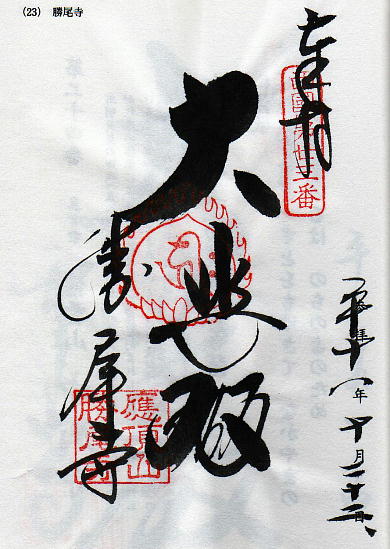 (23) 勝尾寺
奉拝
西國第廿三番
大悲殿
勝尾寺
應頂山
勝尾寺
参拝
平成十八年十月二十二日